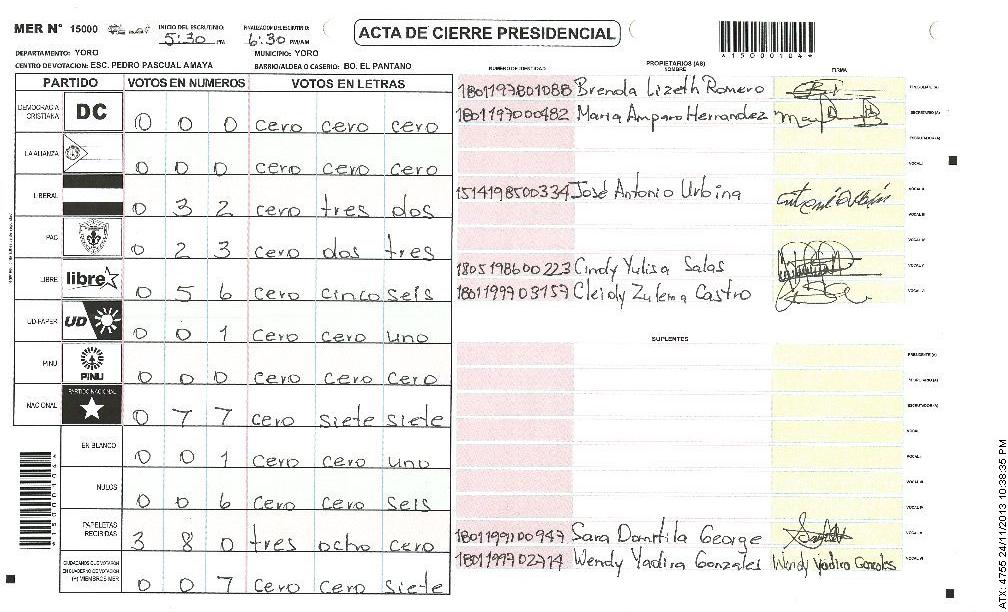 MER Nº 15000 INICIO DEL ESCRUTINIO: 5:30 PM FINALIZACION DEL ESCRUTINIO: 6:30 PM/AM
ACTA DE CIERRE PRESIDENCIAL
*15000104*
DEPARTAMENTO: YORO MUNICIPIO: YORO
CENTRO DE VOTACION: ESC. PEDRO PASCUAL AMAYA BARRIO/ALDEA O CASERIO: BO. EL PANTANO
PARTIDO VOTOS EN NUMEROS VOTOS EN LETRAS
DEMOCRACIA CRISTIANA DC 0 0 0 cero cero cero
LA ALIANZA 0 0 0 cero cero cero
LIBERAL 0 3 2 cero tres dos
PAC 0 2 3 cero dos tres
LIBRE libre 0 5 6 cero cinco seis
UD-FAPER UD 0 0 1 cero cero uno
PINU PINU 0 0 0 cero cero cero
NACIONAL PARTIDO NACIONAL 0 7 7 cero siete siete
EN BLANCO 0 0 1 cero cero uno
NULOS 0 0 6 cero cero seis
PAPELETAS RECIBIDAS 3 8 0 tres ocho cero
CIUDADANOS QUE VOTARON EN CUADERNO DE VOTACION (+) MIEMBROS MER 0 0 7 cero cero siete
*15000104*
PROPIETARIOS (AS)
NUMERO DE IDENTIDAD NOMBRE FIRMA
1801197801088 Brenda Lizeth Romero PRESIDENTE (A)
1801197000482 Maria Amparo Hernandez SECRETARIO (A)
ESCRUTADOR (A)
VOCAL I
1514198500334 José Antonio Urbina VOCAL II
VOCAL III
VOCAL IV
1805198600223 Cindy Yulisa Salas VOCAL V
1801199903157 Cleidy Zulema Castro VOCAL VI
SUPLENTES
PRESIDENTE (A)
SECRETARIO (A)
ESCRUTADOR (A)
VOCAL I
VOCAL II
VOCAL III
VOCAL IV
1801199100947 Sara Danitila George VOCAL V
1801199902714 Wendy Yadira Gonzales Wendy Yadira Gonzales VOCAL VI
ATX: 4755 24/11/2013 10:38:35 PM